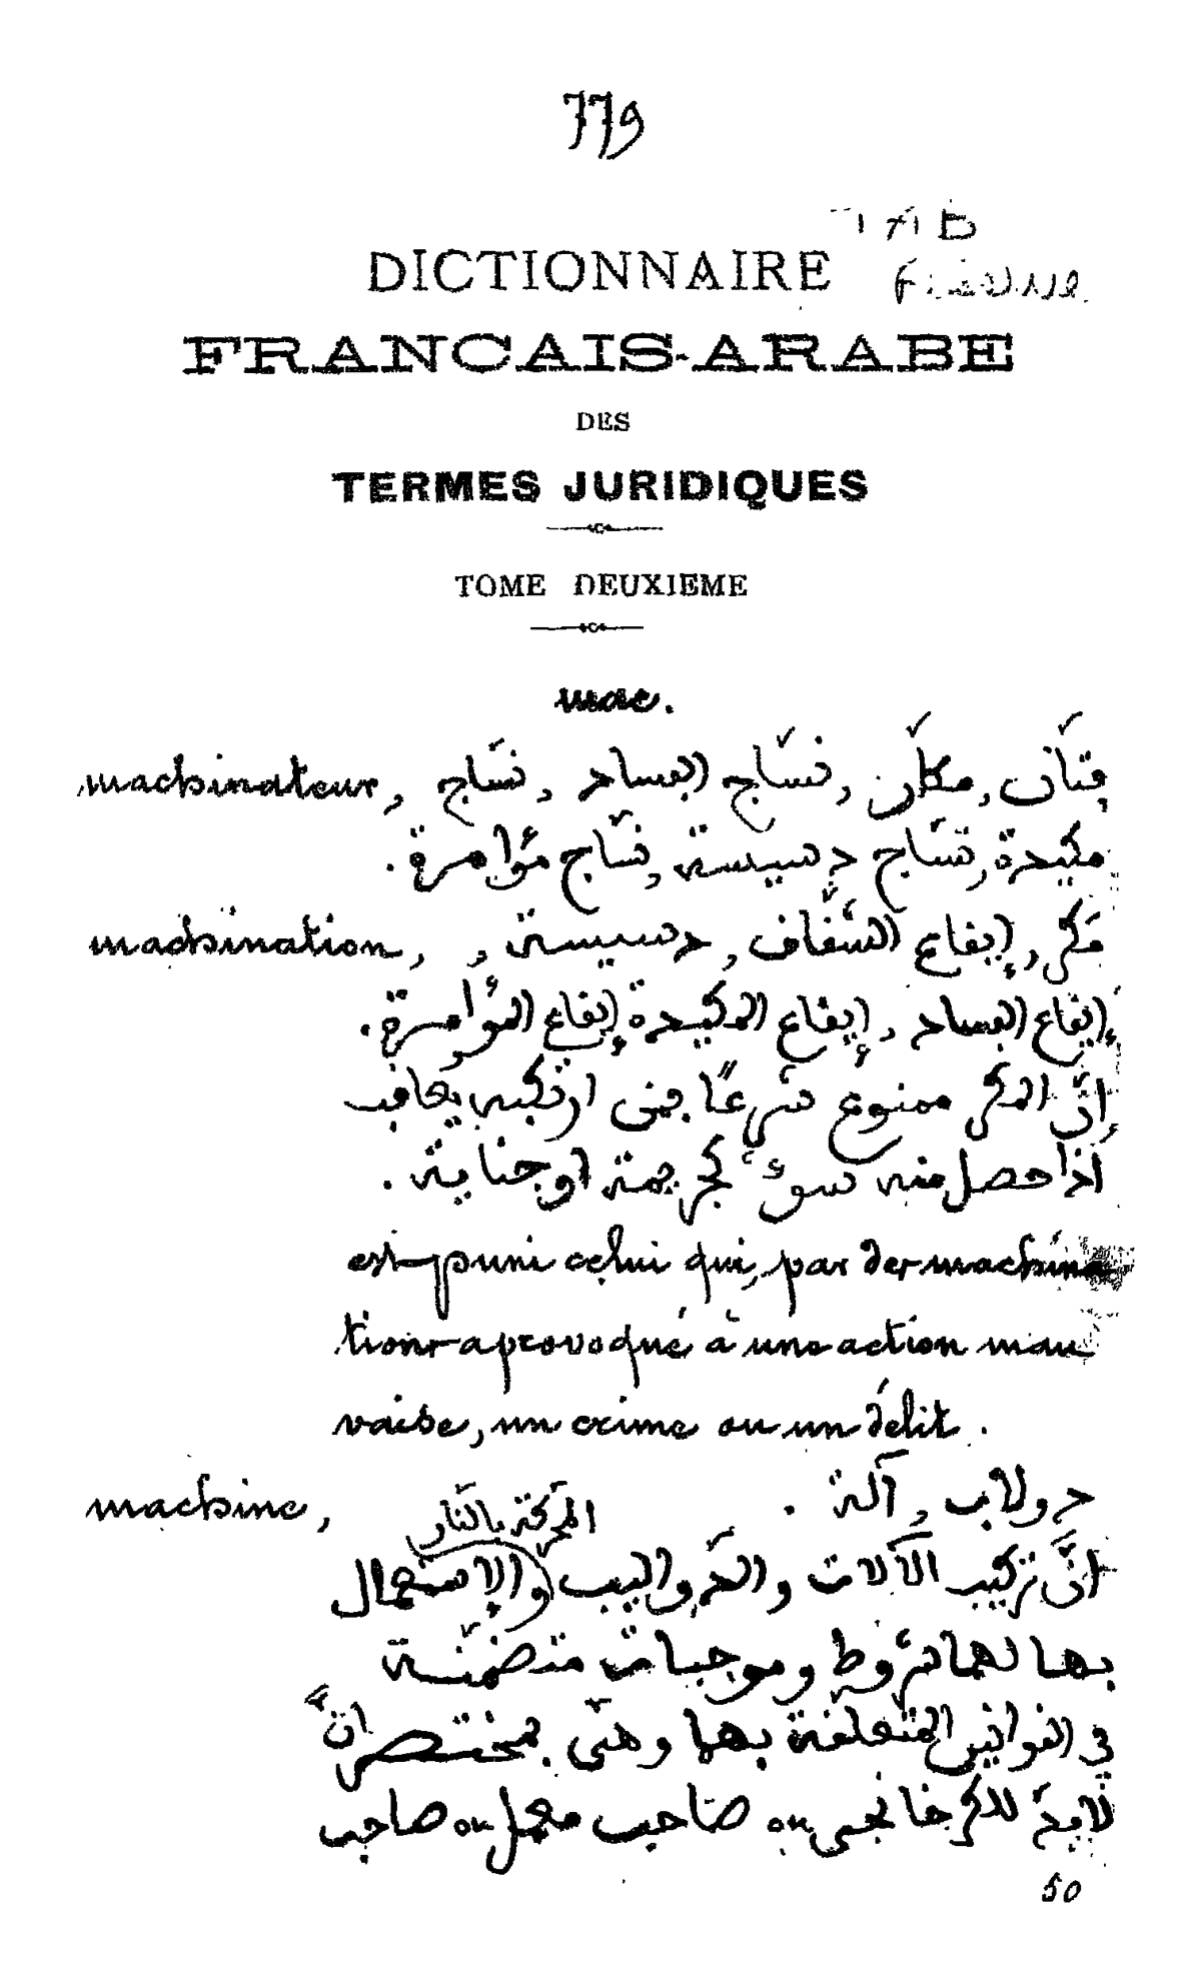 779
DICTIONNAIRE
FRANCAIS-ARABE
DES
TERMES JURIDIQUES
TOME DEUXIEME
mac.
machinateur, فتّان, مكّار, نسّاج الفساد, نسّاج
مكيدة, نسّاج دسيسة, نسّاج مؤامرة.
machination, مَكر, إيقاع الشّقاق, دسيسة,
إيقاع الفساد, إيقاع المكيدة إيقاع المؤامرة.
إنّ المكر ممنوع شرعًا فمن ارتكبه يعاقب
اذا حصل منه سوء كجريمة او جناية.
est puni celui qui, par des machina
tions a provoqué à une action mau
vaise, un crime ou un délit.
machine, دولاب, آلة.
المحرّكة بالنّار
انّ تركيب الآلات والدّواليب والإستعمال
بها لهما شروط وموجبات متضمّنة
في القوانين المتعلقة بها وهي بمختصر انّ
لابدّ للكرخانجي ou صاحب معمل ou صاحب
50